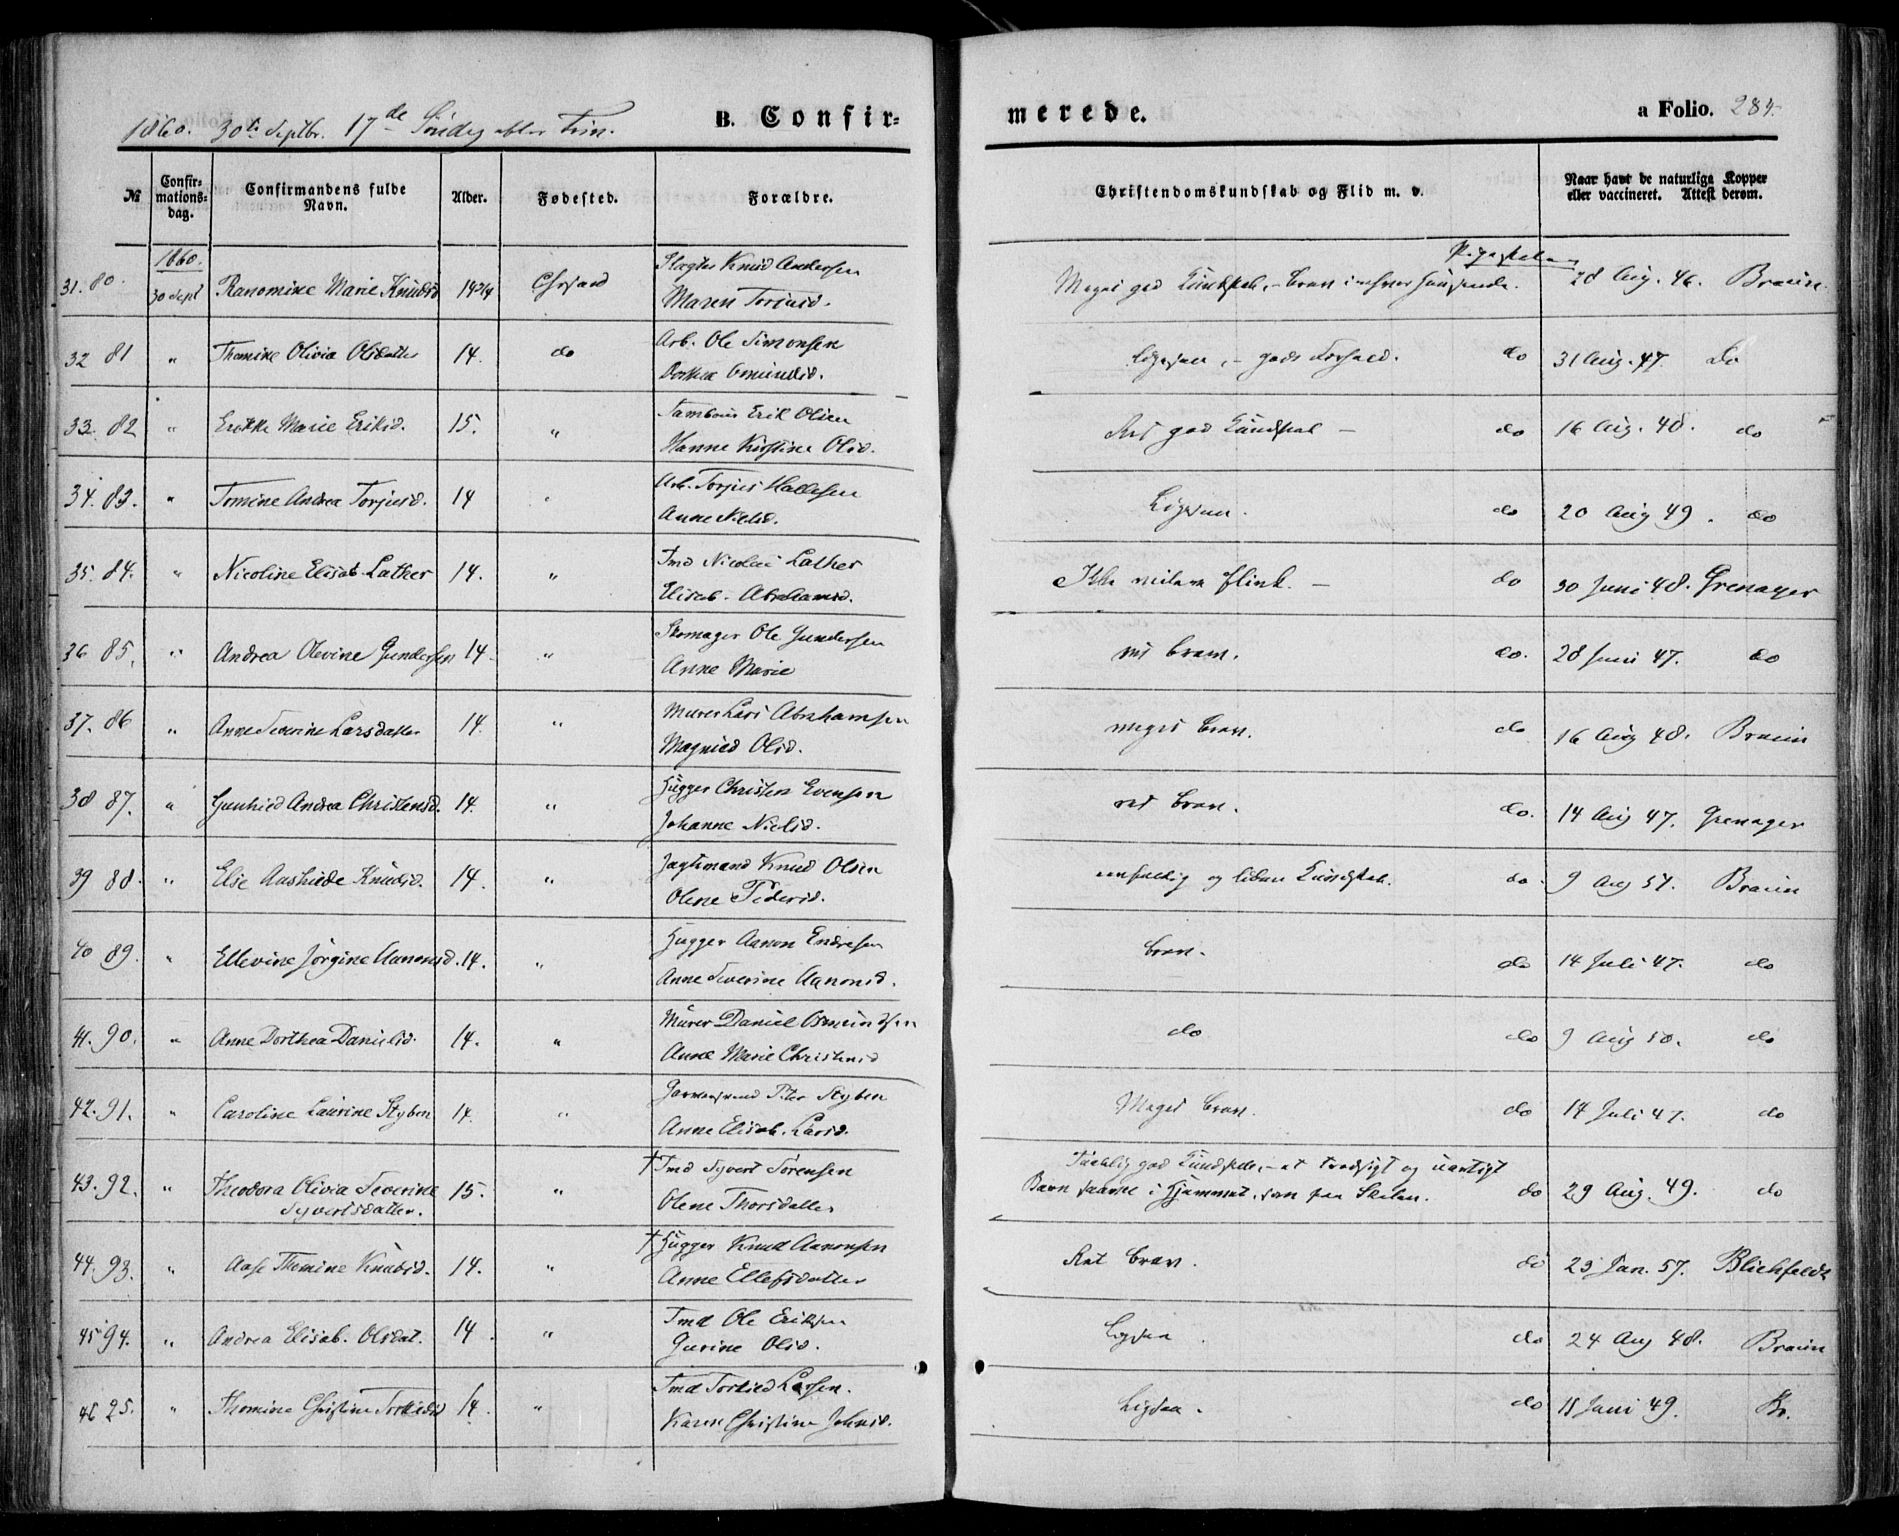 1860. 30te Septbr. 17de Søndag efter Trin.
B. Confirmerede.
a Folio. 284.
№ Confirmationsdag. Confirmandens fulde Navn. Alder. Fødested. Forældre. Christendomskundskab og Flid m. v. Naar havt de naturlige Kopper eller vaccineret. Attest derom.
1860.
31. 80. 30 Sept Ranomine Marie Knudsd. 14 3/4 Chrsand Knud Andersen
Maren
Meget god Kundskab, - brav i enhver Henseende. Pigeskolen 28 Aug. 46. Braun.
32 81 " Thomine Olivia Olsdatter 14. do Arb. Ole Simonsen
Dorthea
Ligesaa, - godt Forhold. do 31 Aug. 47. do
33. 82 " Marie Eriksd. 15. " Tambour Erik Olsen
Hanne Kirstine Olsd.
Ret god Kundskab - do 16 Aug. 48. do
34. 83. " Tomine Andrea Torjusd. 14 " Arb. Torjus Hallesen
Anne Nielsd.
Ligesaa. do 20 Aug 49. do
35. 84. " Nicoline Elisab. Lather 14. " Tmd Nicolai Lather
Elisab. Abrahamsd.
Ikke videre flink. - do 30 Juni 48. Grenager
36 85. " Andrea Olevine Gundersen 14 " Skomager Ole Gundersen
Anne Marie
ret brav. do. 28 Juni 47. do
37. 86 " Anne Severine Larsdatter 14. " Murer Lars Abrahamsen
Magnild Olsd.
meget brav. do 16 Aug 48. Braun
38 87. " Gunhild Andrea Christensd. 14. " Hugger Christen Evensen
Johanne Nielsd.
ret brav. do. 14 Aug 47. Grenager
39 88. " Else Knudsd. 14. " Jagtmand Knud Olsen
Olene Pedersd.
eenfoldig og liden Kundskab. do. 9 Aug 57. Braun
40 89. " Ellevine Jørgine Aanonsd. 14. " Hugger Aanon Endresen
Anne Severine Aanonsd.
brav. do 14 Juli 47. do
41. 90. " Anne Dorthea Danielsd. 14. " Murer Daniel Osmundsen
Anne Marie Christensd
do do 9 Aug 50. do
42. 91. " Caroline Laurine Styben 14. " Peter Styben
Anne Elisab. Larsd.
Meget brav. do 14 Juli 47. do
43. 92. " Theodora Olivia Severine 15. " † Tmd Syvert Sørensen
Syvertsdatter. Olene Thorsdatter
god Kundskab, - et trodsigt og uartigt
Barn saavel i Hjemmet, som paa Skolen. do 29 Aug. 49. do
44. 93. " Aase Thomine Knudsd. 14. " † Hugger Knud Aanonsen
Anne Ellefsdatter
Ret brav. do 23 Jan. 57. Blichfeldt
45 94. " Andrea Elisab. Olsdat. 14. " Tmd Ole Eriksen
Gurine Olsd.
Ligesaa do 24 Aug 48. Braun
46 25. " Thomine Christine Torkildsd 14. " Tmd Torkild Larsen.
Karen Christine Johnsd.
Ligesaa. do 15 Juni 49. Br.